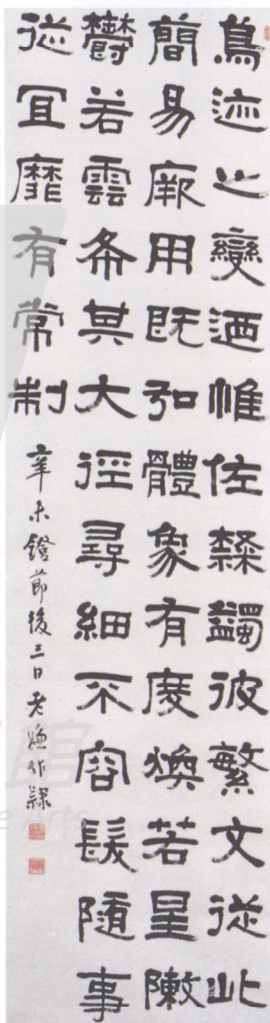 鳥迹之變迺惟佐隸蠲彼繁文從此
簡易厥用既弘體象有度煥若星陳
鬱若雲布其大徑尋細不容髮隨事
從宜靡有常制
辛未鐙節後三日老作隸
館
e Arts